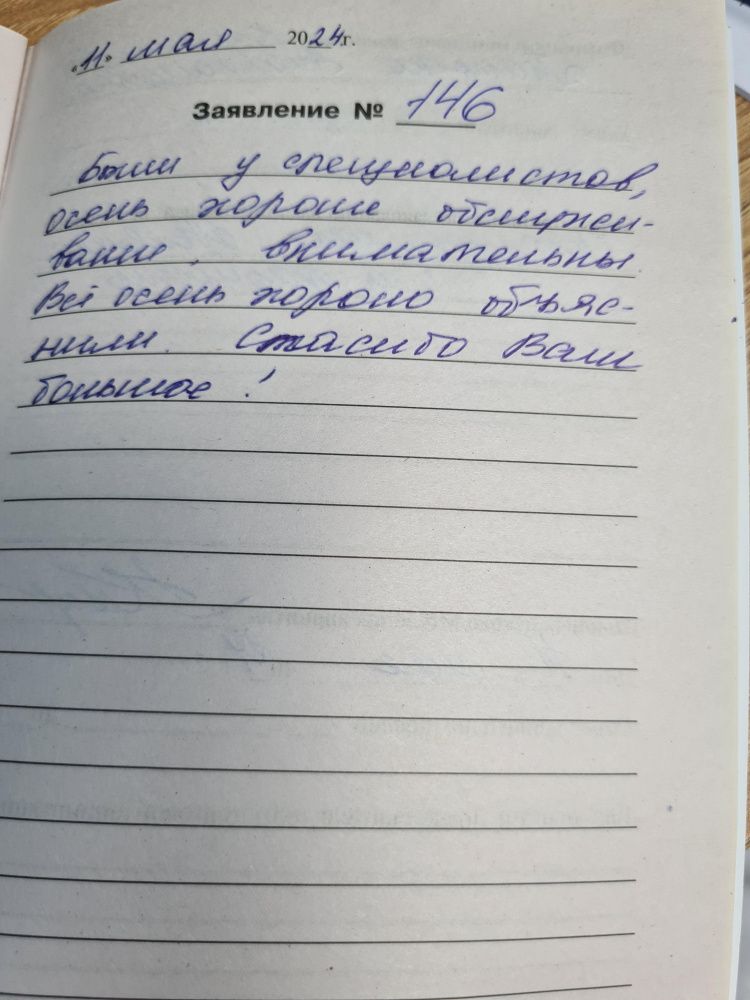 «11» мая 2024г.
Заявление № 146
Были у специалистов,
очень хорошее обслужи-
вание, внимательны.
Всё очень хорошо объяс-
нили. Спасибо Вам
большое!